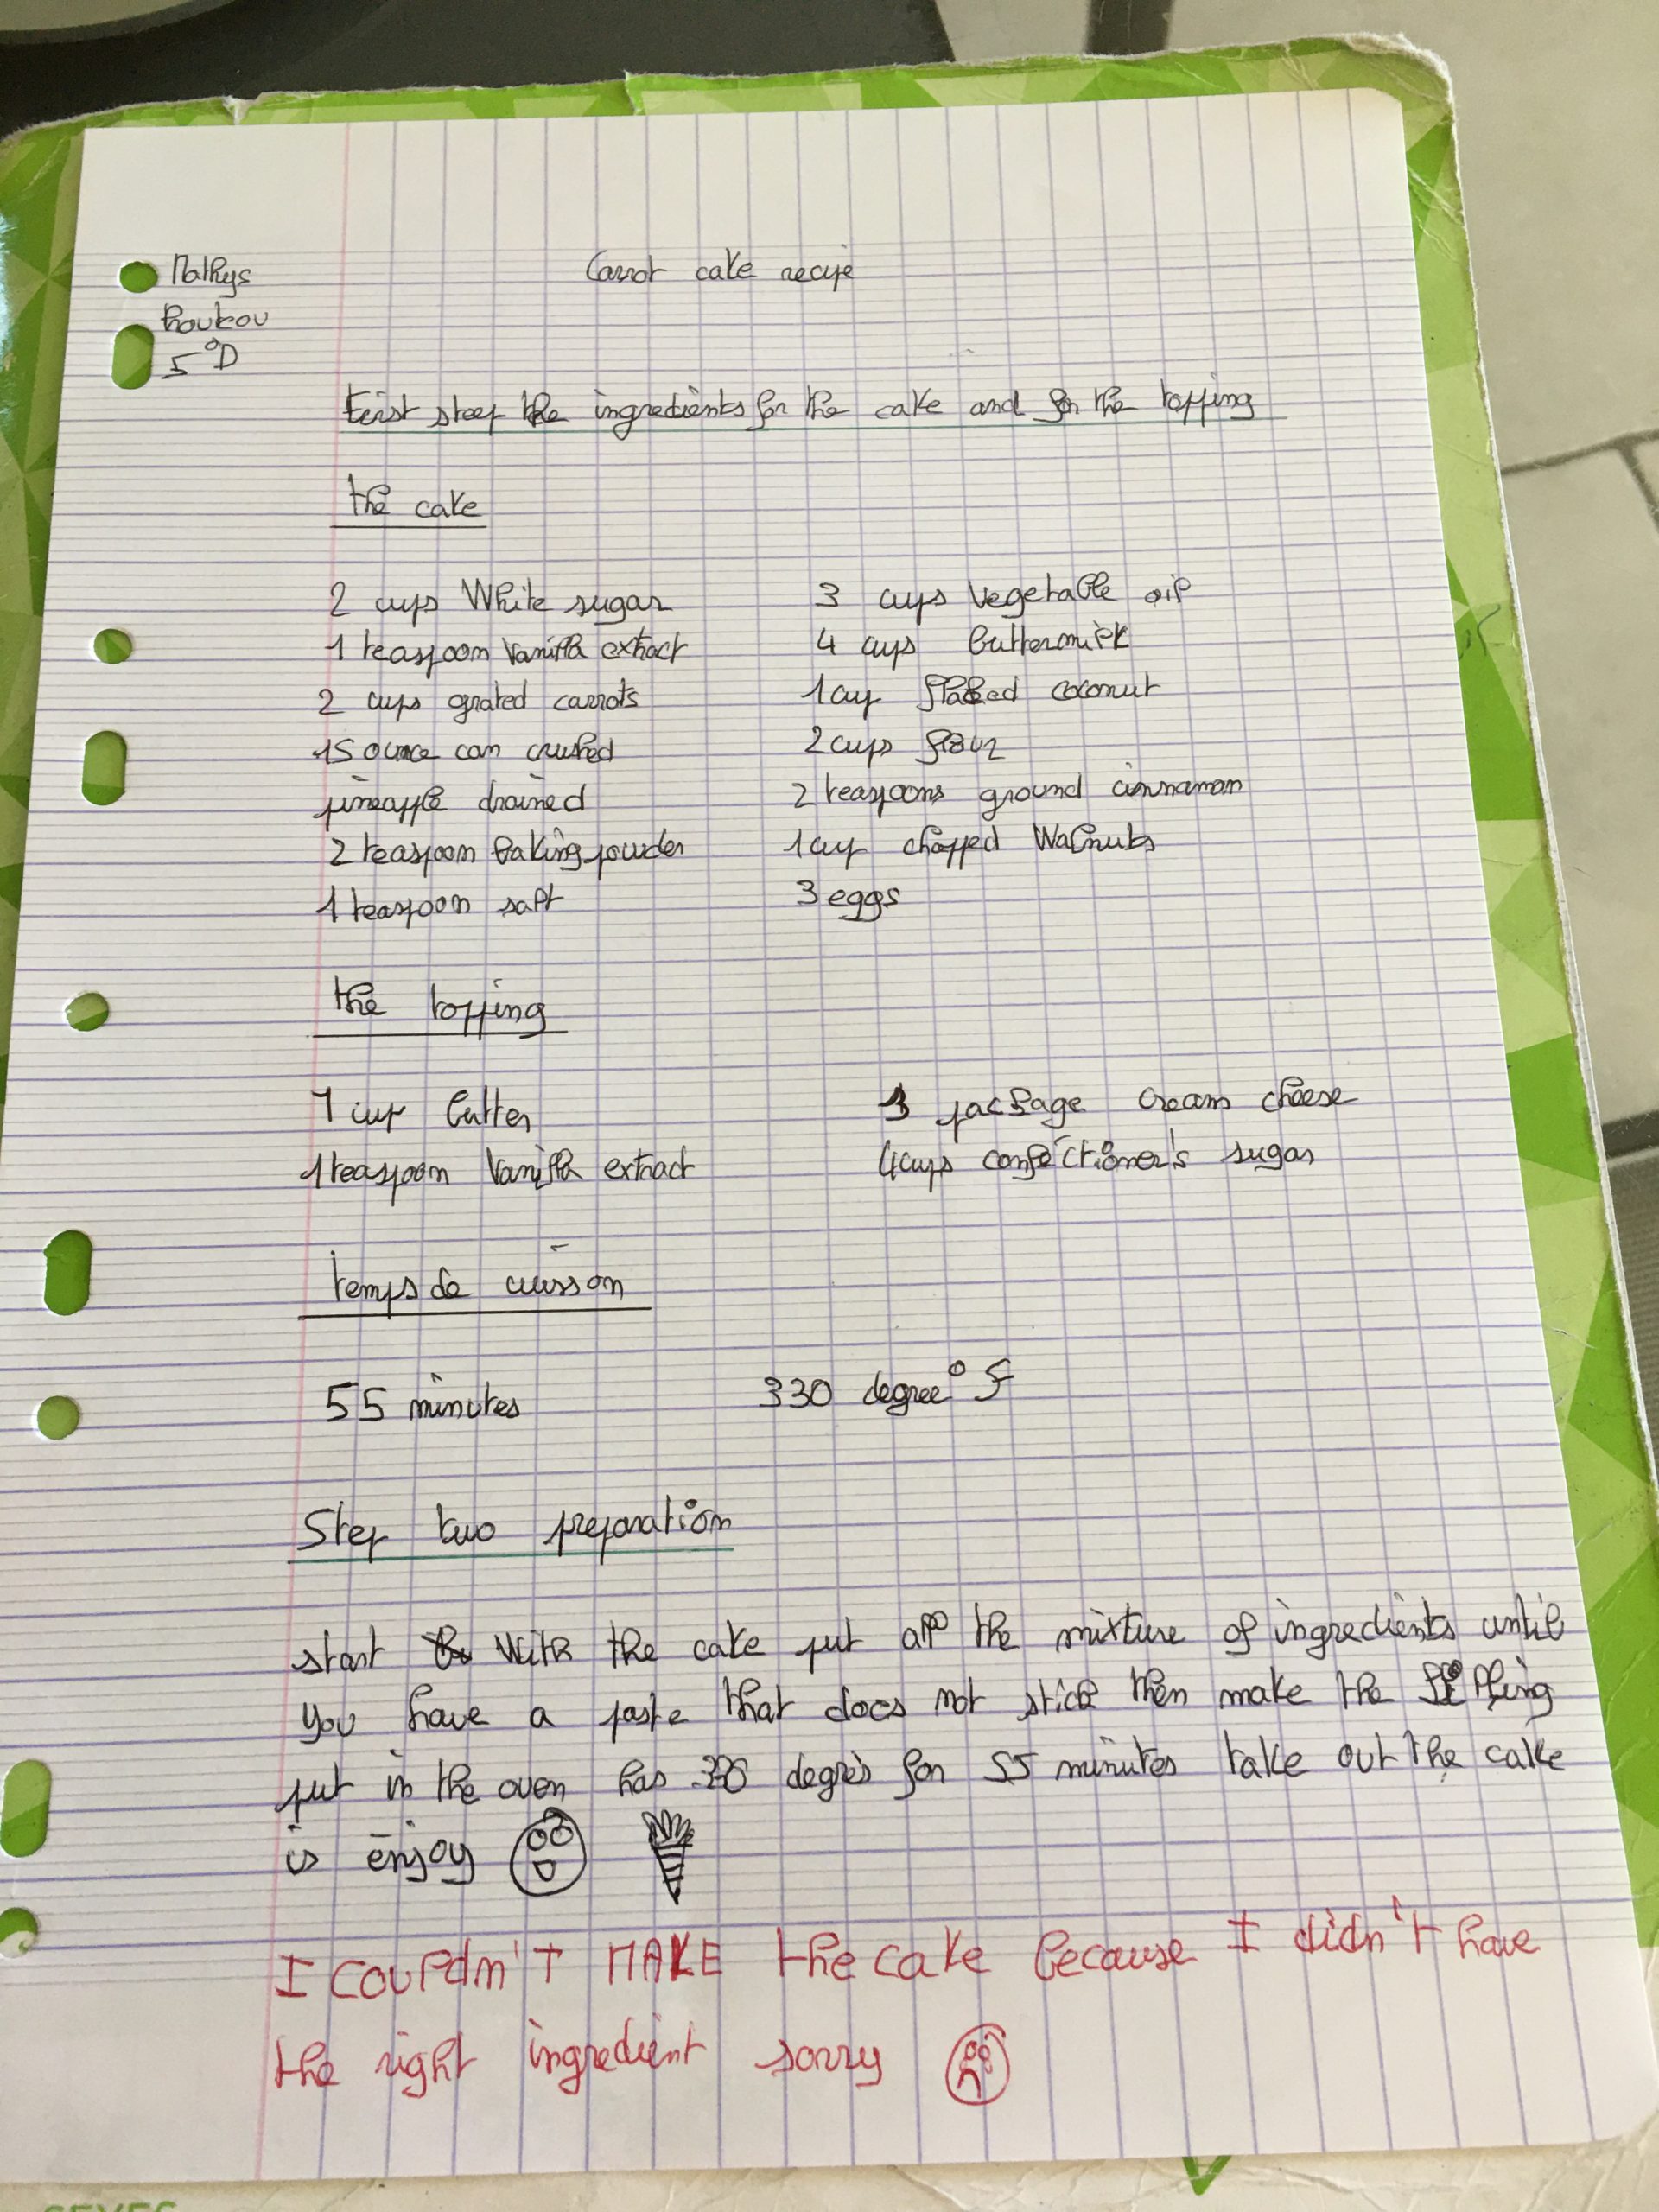 Mathys
Carrot cake recipe
houkou
5°D
First steep the ingredients for the cake and for the topping
the cake
2 cups White sugar
3 cups vegetable oil
1 teaspoon vanilla extract
4 cups buttermilk
2 cups grated carrots
1 cup flaked coconut
15 ounce can crushed
2 cups flour
pineapple drained
2 teaspoons ground cinnamon
2 teaspoon baking powder
1 cup chopped Walnuts
1 teaspoon salt
3 eggs
the topping
1 cup butter
3 package cream cheese
1 teaspoon vanilla extract
4 cups confectioner's sugar
temps de cuisson
55 minutes
330 degree° F
Step two preparation
start with the cake put all the mixture of ingredients until
you have a paste that does not stick then make the filling
put in the oven has degrès for 55 minutes take out the cake
is enjoy
I COULDN'T MAKE the cake because I didn't have
the right ingredient sorry